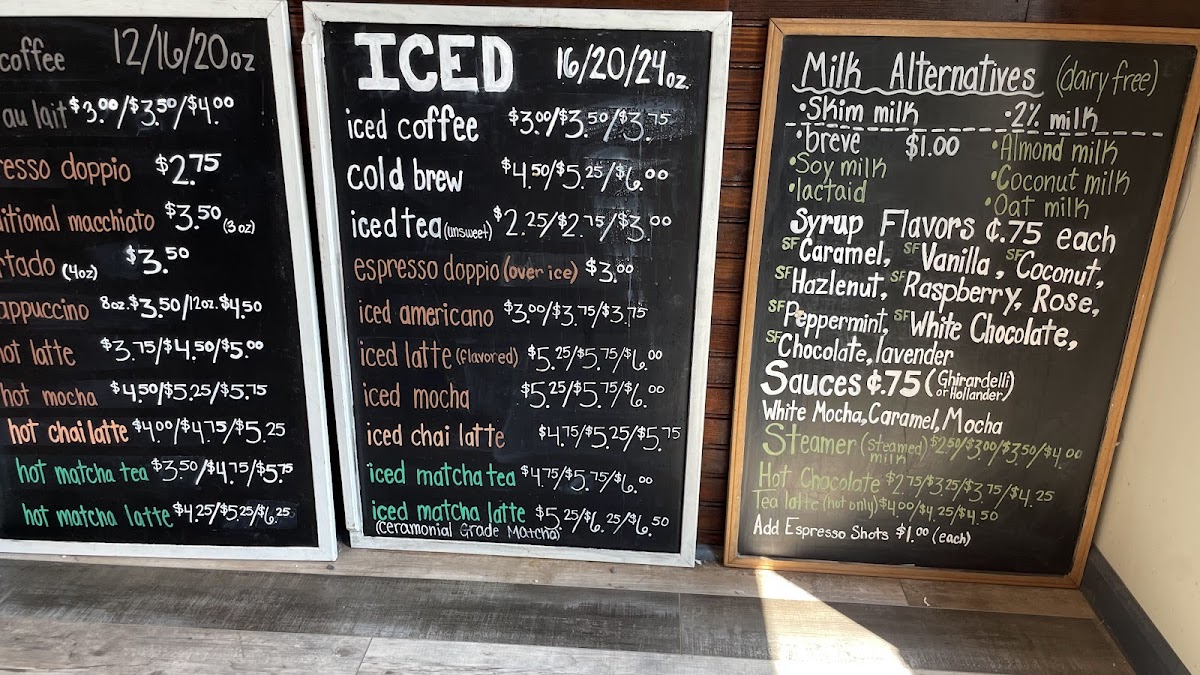 coffee 12/16/20oz
au lait $3.00/$3.50/$4.00
resso doppio $2.75
itional macchiato $3.50 (3oz)
rtado (4oz) $3.50
appuccino 8oz.$3.50/12oz.$4.50
hot latte $3.75/$4.50/$5.00
hot mocha $4.50/$5.25/$5.75
hot chai latte $4.00/$4.75/$5.25
hot matcha tea $3.50/$4.75/$5.75
hot matcha latte $4.25/$5.25/$6.25
ICED 16/20/24oz.
iced coffee $3.00/$3.50/$3.75
cold brew $4.50/$5.25/$6.00
iced tea (unsweet) $2.25/$2.75/$3.00
espresso doppio (over ice) $3.00
iced americano $3.00/$3.75/$3.75
iced latte (flavored) $5.25/$5.75/$6.00
iced mocha $5.25/$5.75/$6.00
iced chai latte $4.75/$5.25/$5.75
iced matcha tea $4.75/$5.75/$6.00
iced matcha latte $5.25/$6.25/$6.50
(Ceramonial Grade Matcha)
Milk Alternatives (dairy free)
•Skim milk •2% milk
•breve $1.00 •Almond milk
•Soy milk •Coconut milk
•lactaid •Oat milk
Syrup Flavors ¢.75 each
SF Caramel, SF Vanilla, SF Coconut,
SF Hazlenut, SF Raspberry, Rose,
SF Peppermint, SF White Chocolate,
SF Chocolate, lavender
Sauces ¢.75 (Ghirardelli or Hollander)
White Mocha, Caramel, Mocha
Steamer (steamed milk) $2.50/$3.00/$3.50/$4.00
Hot Chocolate $2.75/$3.25/$3.75/$4.25
Tea latte (hot only) $4.00/$4.25/$4.50
Add Espresso Shots $1.00 (each)